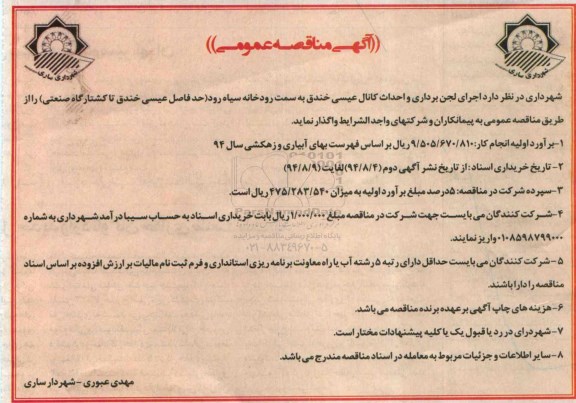 ((آگهی مناقصه عمومی))
شهرداری ساری
شهرداری ساری
شهرداری در نظر دارد اجرای لجن برداری و احداث کانال عیسی خندق به سمت رودخانه سیاه رود(حد فاصل عیسی خندق تا کشتارگاه صنعتی) را از
طریق مناقصه عمومی به پیمانکاران و شرکتهای واجد الشرایط واگذار نماید.
۱-برآورد اولیه انجام کار: ۹/۵۰۵/۶۷۰/۸۱۰ ریال بر اساس فهرست بهای آبیاری و زهکشی سال ۹۴
۲- تاریخ خریداری اسناد : از تاریخ نشر آگهی دوم (۹۴/۸/۴) لغایت (۹۴/۸/۹)
۳-سپرده شرکت در مناقصه: ۵درصد مبلغ برآورد اولیه به میزان ۴۷۵/۲۸۳/۵۴۰ ریال است.
۴-شرکت کنندگان می بایست جهت شرکت در مناقصه مبلغ ۱/۰۰۰/۰۰۰ریال بابت خریداری اسناد به حساب سیبا درآمد شهرداری به شماره
۰۱۰۸۵۹۸۷۹۹۰۰۰ واریز نمایند.
۵-شرکت کنندگان می بایست حداقل دارای رتبه ۵ رشته آب یا راه معاونت برنامه ریزی استانداری و فرم ثبت نام مالیات بر ارزش افزوده بر اساس اسناد
مناقصه را دارا باشند.
۶-هزینه های چاپ آگهی بر عهده برنده مناقصه می باشد.
۷-شهرداری در رد یا قبول یک یا کلیه پیشنهادات مختار است.
۸-سایر اطلاعات و جزئیات مربوط به معامله در اسناد مناقصه مندرج می باشد.
مهدی عبوری -شهردار ساری
۰۲۱-۸۸۳۴۹۶۷۰-۵